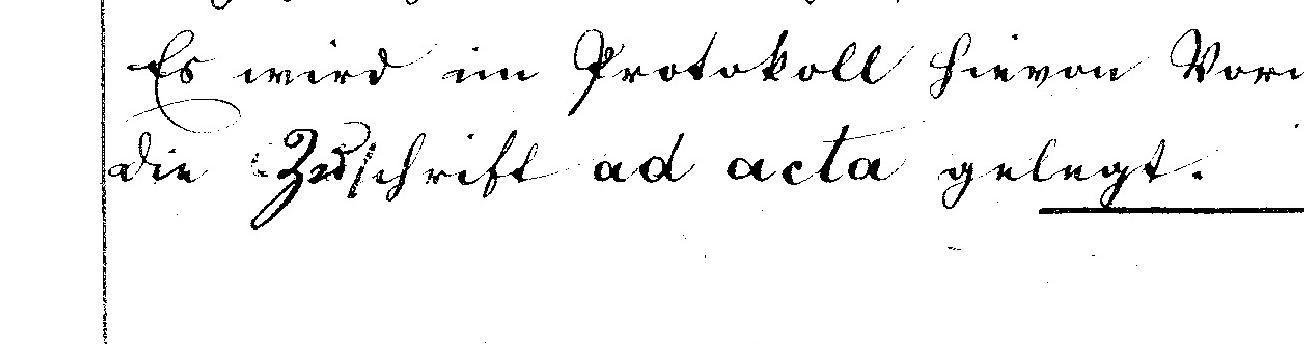 Es wird im Protokoll hievon Vor
die Zuschrift ad acta gelegt.